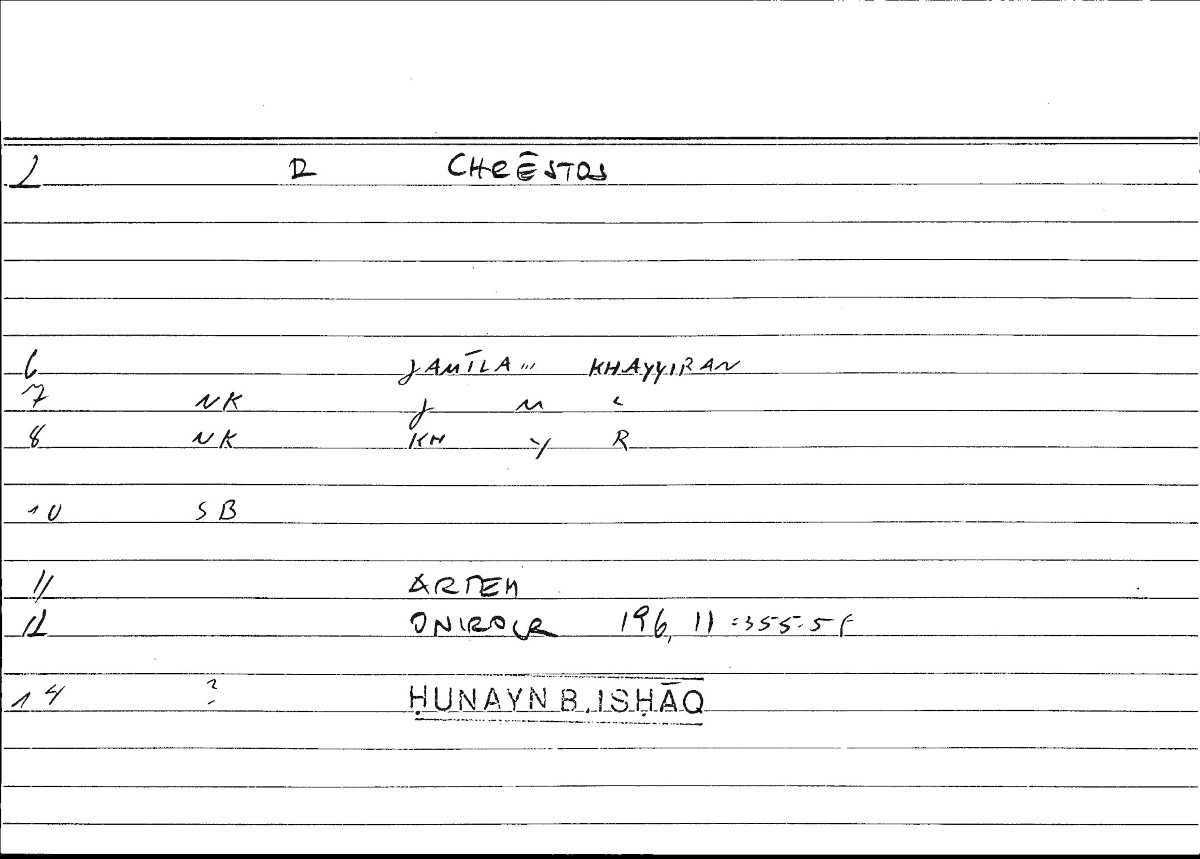 2 D CHRĒSTOS
6 JAMĪLA ,,, KHAYYIRAN
7 NK J M L
8 NK KH Y R
10 SB
11 ARTEM
12 ONIROCR 196, 11 :355.5 f
14 ? ḤUNAYN B. ISḤĀQ